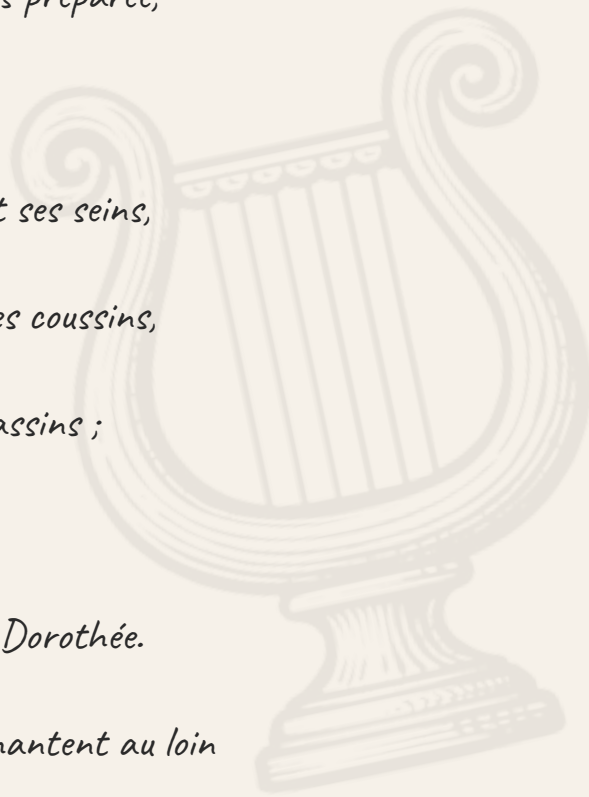 préparée,
ses seins,
coussins,
assins ;
Dorothée.
hantent au loin